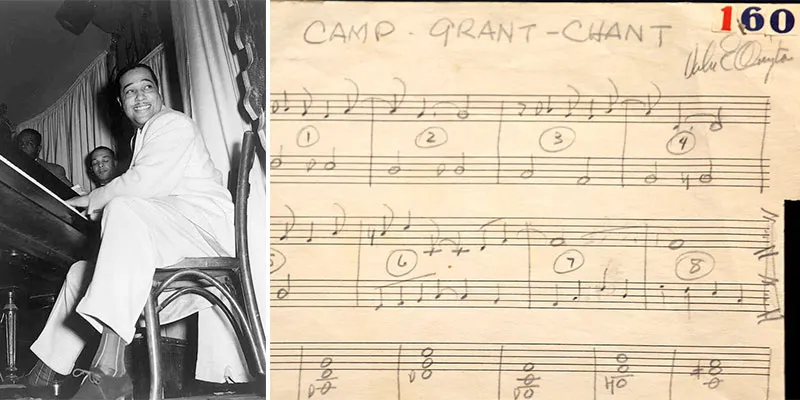 CAMP - GRANT - CHANT
160
Duke Ellington
1
2
3
4
5
6
7
8